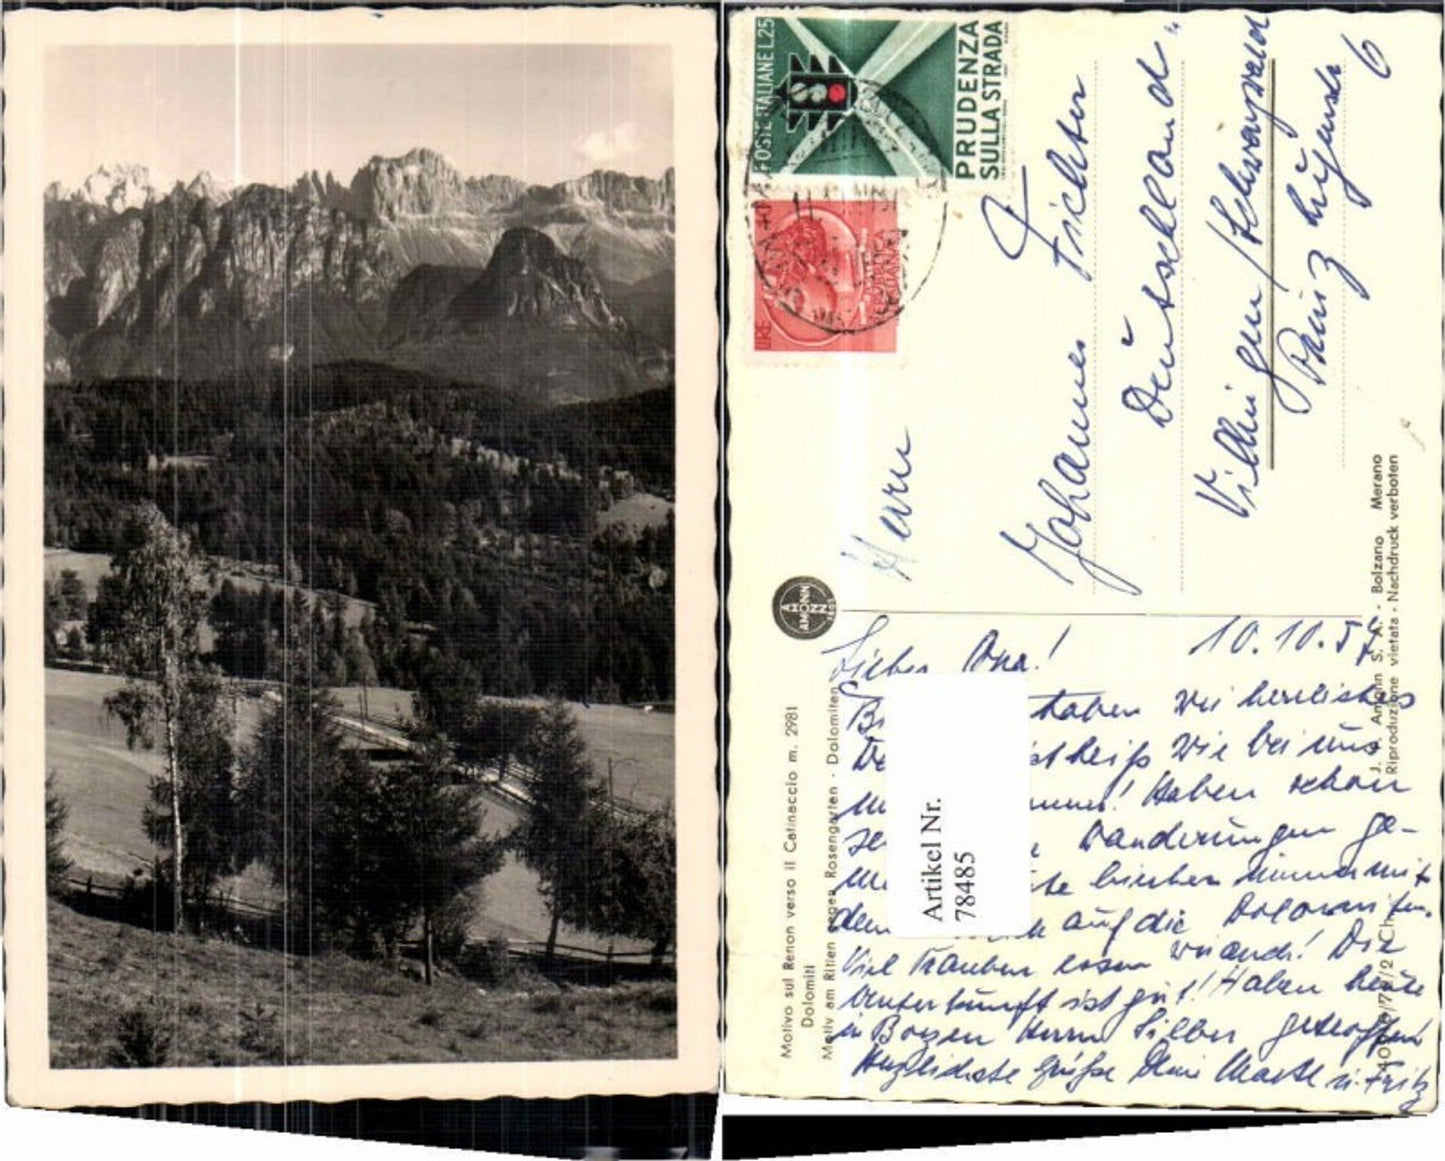 POSTE ITALIANE L.25
PRUDENZA
SULLA STRADA
LIRE
Herrn
Johannes Frichter
Deutschland
Villingen/Schwarzwald
Prinz
6
AMONN
Motivo sul Renon verso il Catinaccio m. 2981
Dolomiti
Motiv am Ritten gegen Rosengarten - Dolomiten
J. F. Amonn S. A. - Bolzano Merano
Riproduzione vietata - Nachdruck verboten
10.10.57
Lieber Opa!
haben wir herrliches
heiß wie bei uns
Haben schon
Wanderungen ge-
bisher immer mit
dem auf die Dolomiten.
Viel Trauben essen wir auch! Die
Unterkunft ist gut! Haben heute
in Bozen Herrn Silber getroffen!
Herzlichste Grüße Deine u. Fritz
Artikel Nr.
78485